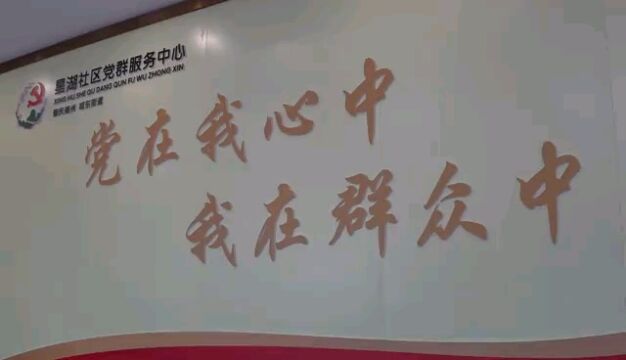 星湖社区党群服务中心
XING HU SHE QU DANG QUN FU WU ZHONG XIN
党在我心中
我在群众中